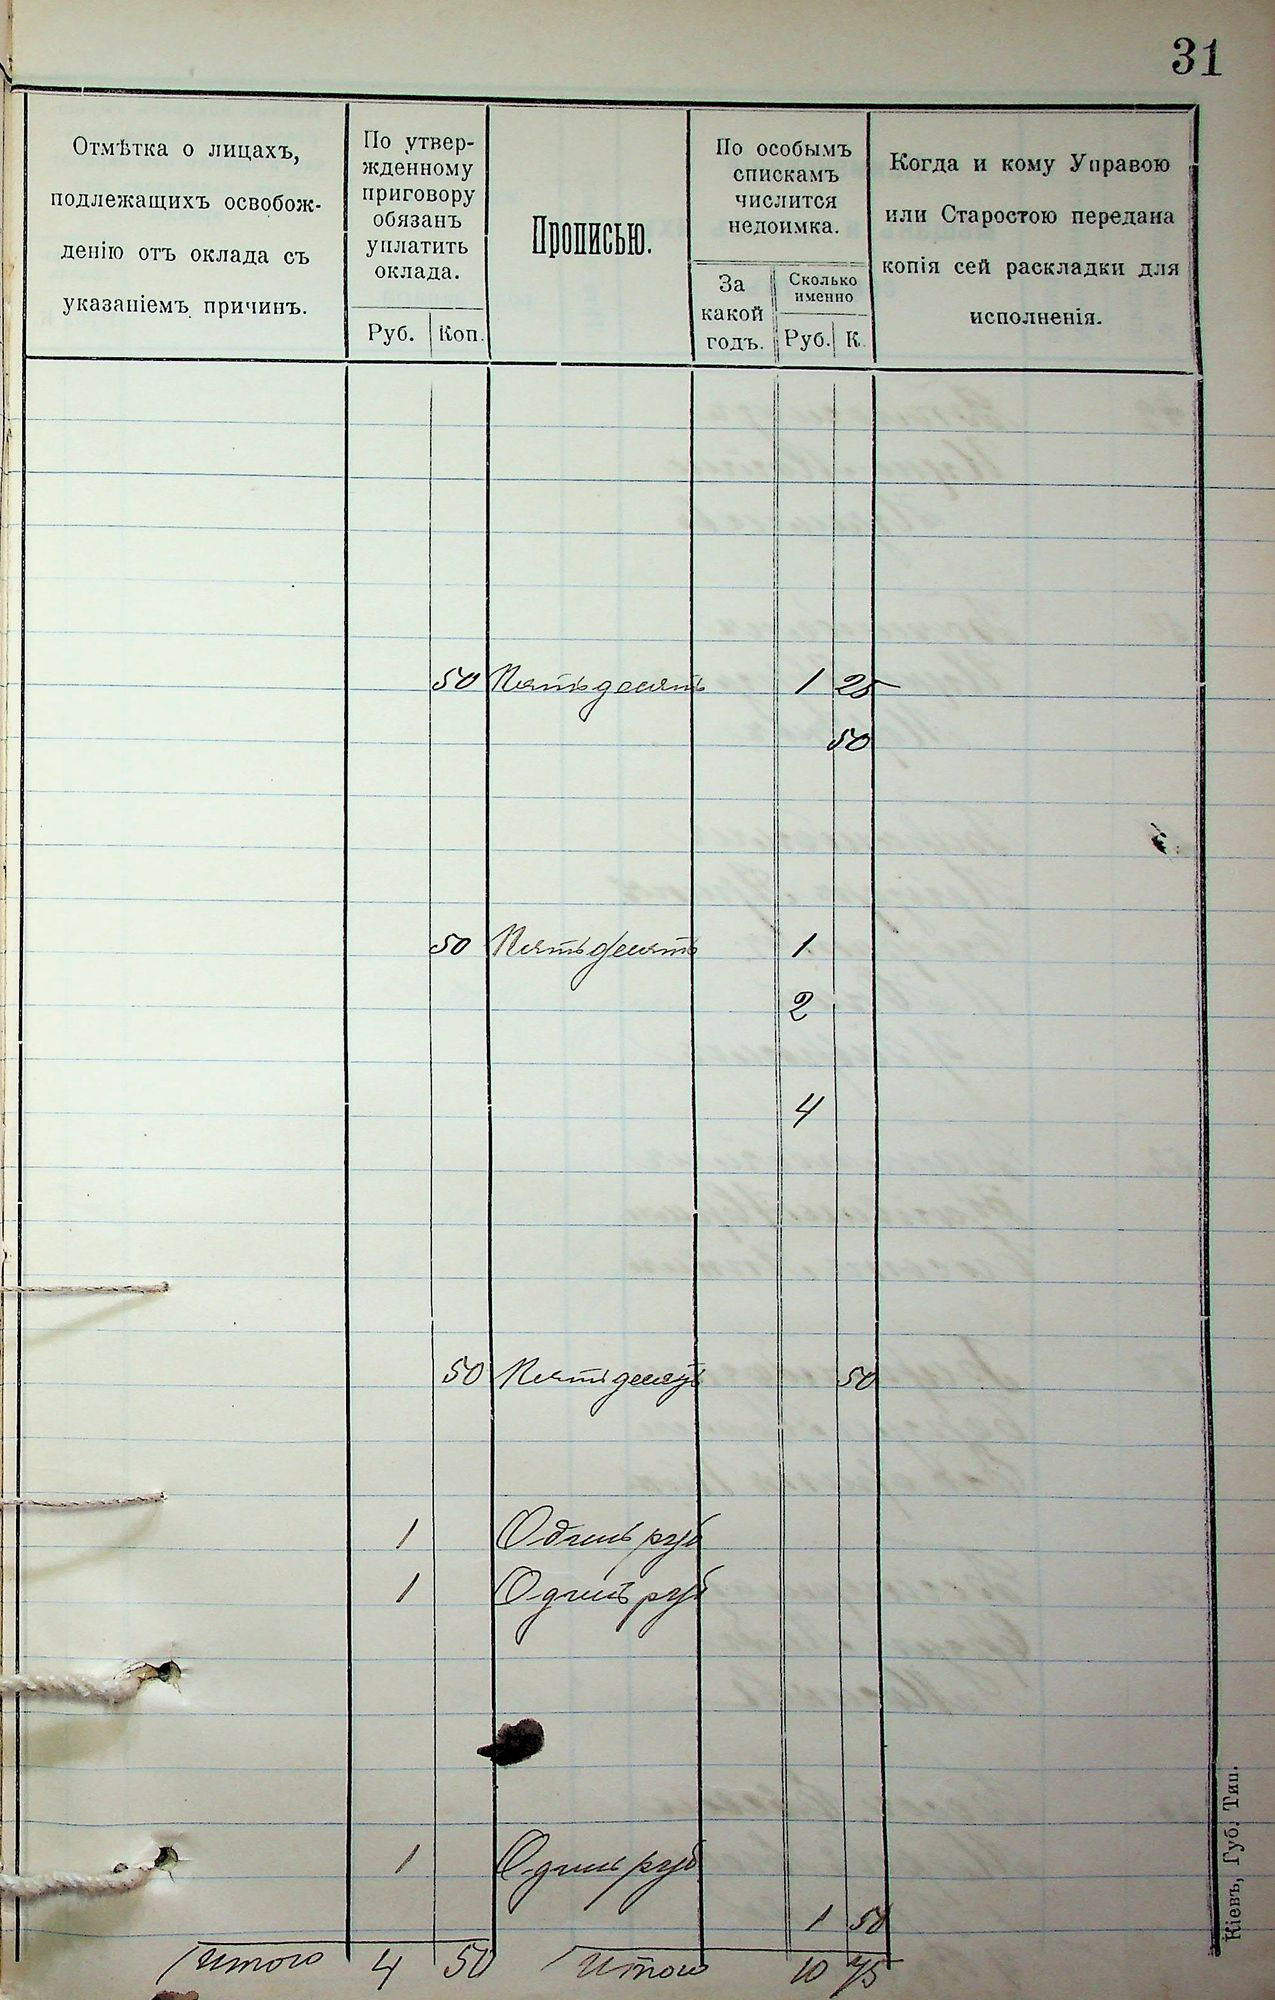 31
Отмѣтка о лицахъ,
подлежащихъ освобож-
денію отъ оклада съ
указаніемъ причинъ.
По утвер-
жденному
приговору
обязанъ
уплатить
оклада.
Руб. Коп.
Прописью.
По особымъ
спискамъ
числится
недоимка.
За
какой
годъ.
Сколько
именно
Руб. К.
Когда и кому Управою
или Старостою передана
копія сей раскладки для
исполненія.
50 Пятьдесятъ 1 25
50
50 Пятьдесятъ 1
2
4
50 Пятьдесятъ 50
1 Одинъ руб
1 Одинъ руб
1 Одинъ руб
1 50
Итого 4 50 Итого 10 75
Кіевъ, Губ. Тип.